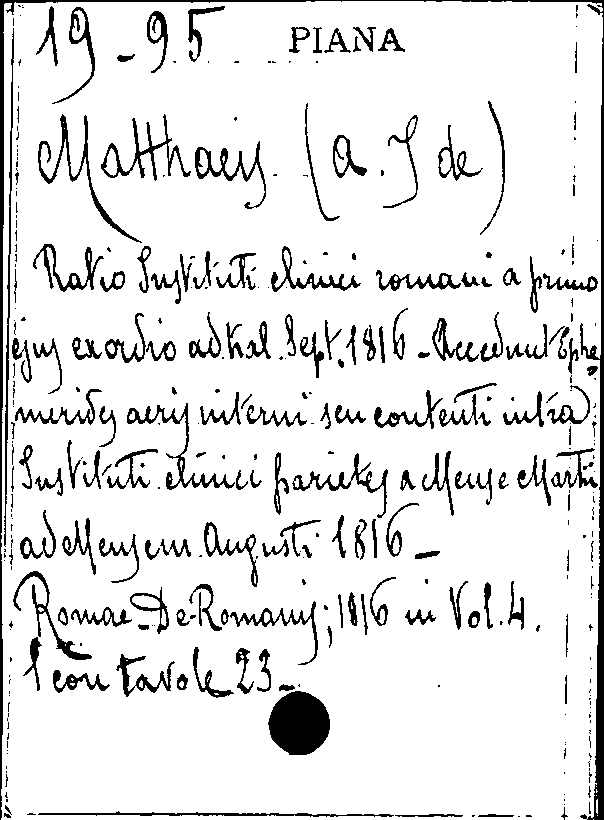 19-95 PIANA
Matthaeis (A. J de)
Ratio Instituti clinici romani a primo
ejus exordio ad kal. Sept. 1816 - Accedunt Ephe=
merides aeris interni seu contenti intra
Instituti clinici parietes a Mense Martii
ad Mensem Augusti 1816 -
Romae - De-Romanis; 1816 in Vol. 4.
con tavole 23-